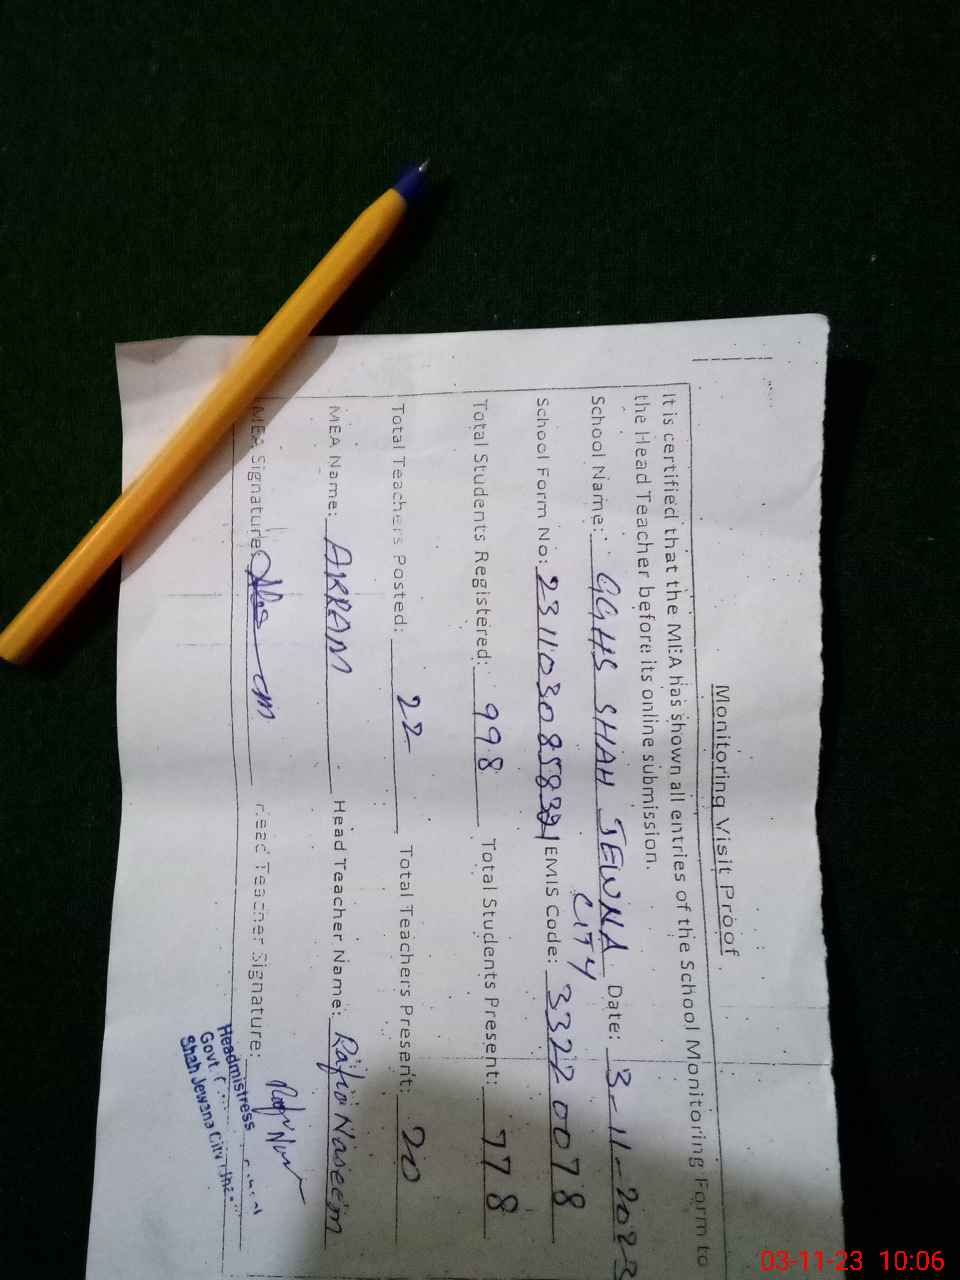 Monitoring Visit Proof
It is certified that the MEA has shown all entries of the School Monitoring Form to
the Head Teacher before its online submission.
School Name: GGHS SHAH JEWNA CITY Date: 3-11-2023
School Form No: EMIS Code: 33220078
Total Students Registered: 998 Total Students Present: 778
Total Teachers Posted: 22 Total Teachers Present: 20
MEA Name: AKRAM Head Teacher Name: Rafia Naseem
MEA Signature: Head Teacher Signature:
Headmistress
Govt.
Shah Jewana City
03-11-23 10:06